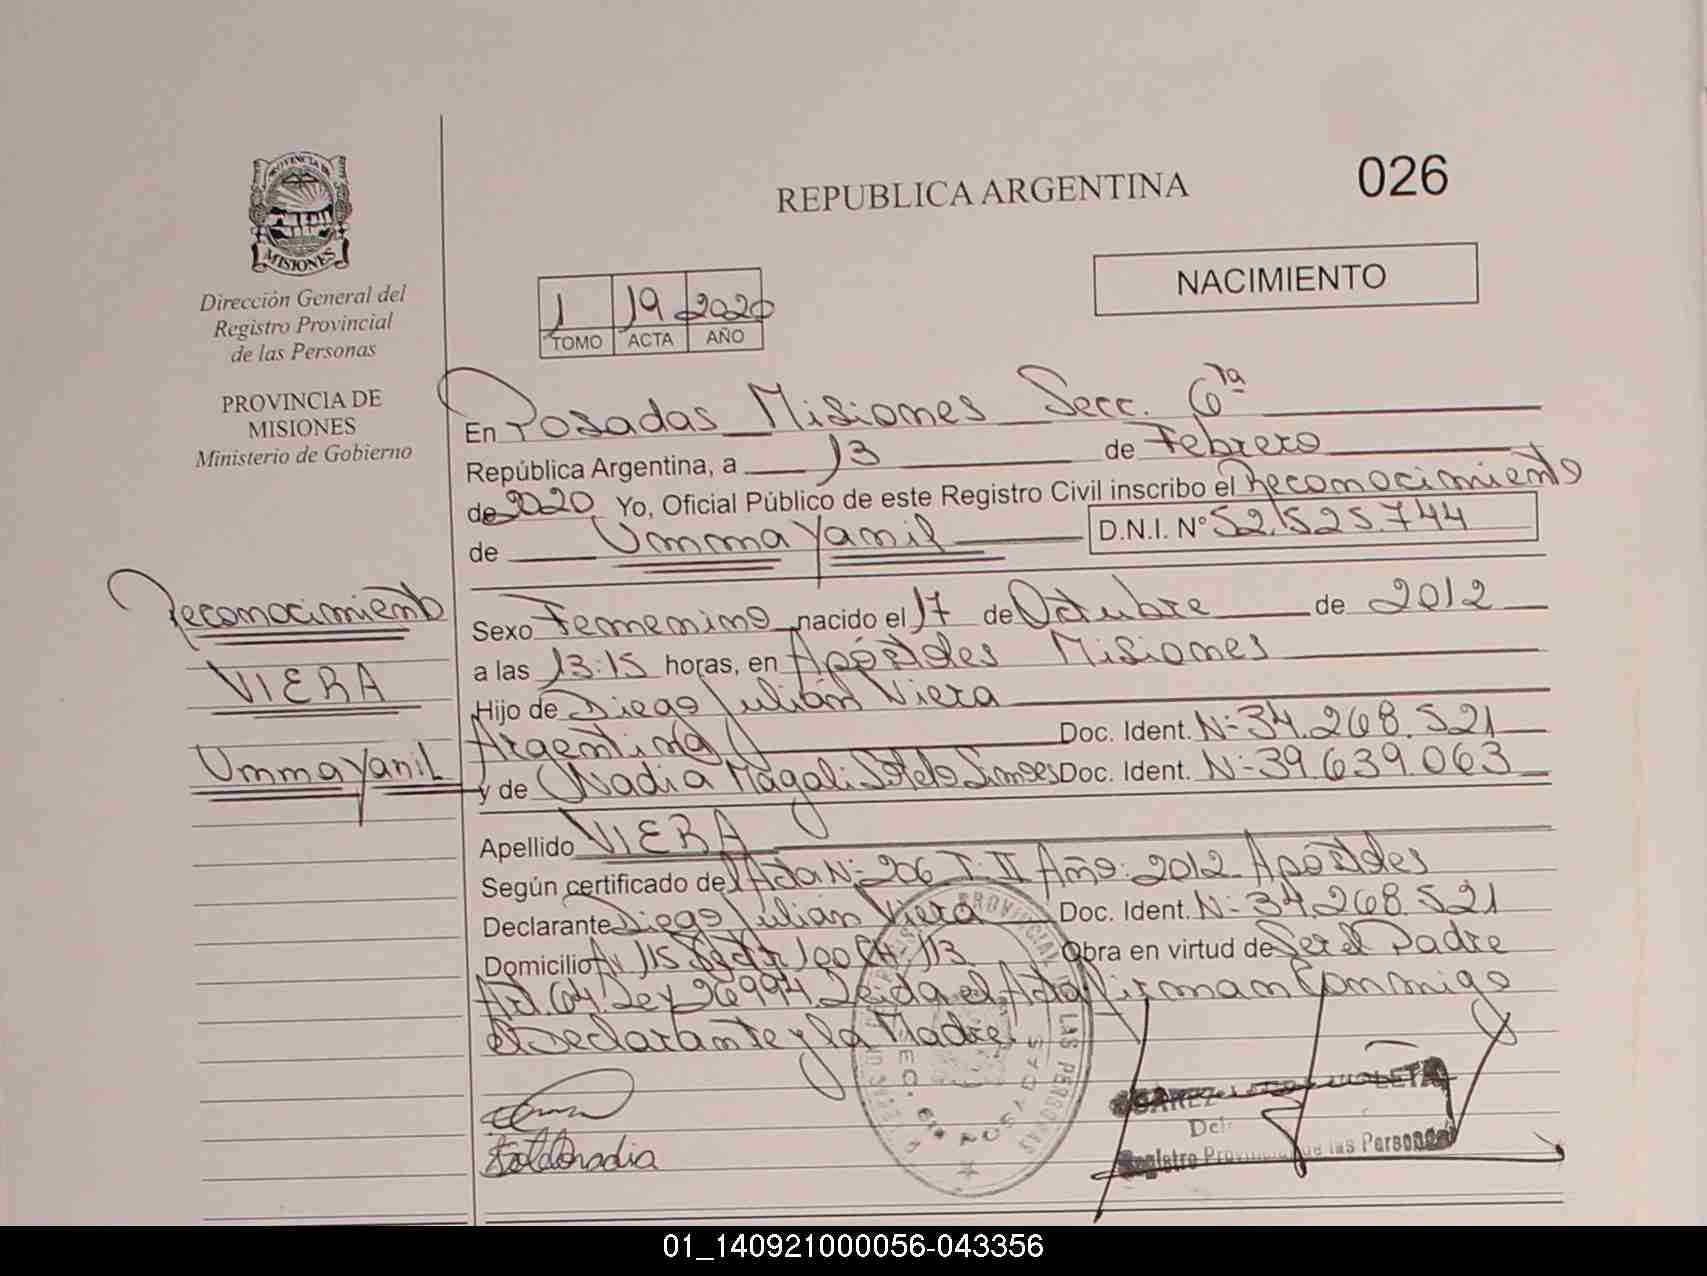 026
REPUBLICA ARGENTINA
NACIMIENTO
PROVINCIA DE
MISIONES
Dirección General del
Registro Provincial
de las Personas
PROVINCIA DE
MISIONES
Ministerio de Gobierno
1 19 2020
TOMO ACTA AÑO
En Posadas Misiones Secc. 6ta
República Argentina, a 13 de Febrero
de 2020 Yo, Oficial Público de este Registro Civil inscribo el Reconocimiento
de Umma Yanil D.N.I. N° 52.525.744
Reconocimiento
VIERA
Umma Yanil
Sexo Femenino nacido el 17 de Octubre de 2012
a las 13:15 horas, en Apóstoles Misiones
Hijo de Diego Julián Viera
Argentina Doc. Ident. N- 34.268.521
y de Nadia Magali Sotelo Simoes Doc. Ident. N- 39.639.063
Apellido VIERA
Según certificado del Acta N- 206 T: II Año: 2012 Apóstoles
Declarante Diego Julián Viera Doc. Ident. N- 34.268.521
Domicilio Av 115 100 CH 113 Obra en virtud de Ser el Padre
Art. 64. Ley 26994 Leida el Acta Firman Conmigo
el Declarante y la Madre
POSADAS
Registro Provincial de las Personas
01_140921000056-043356